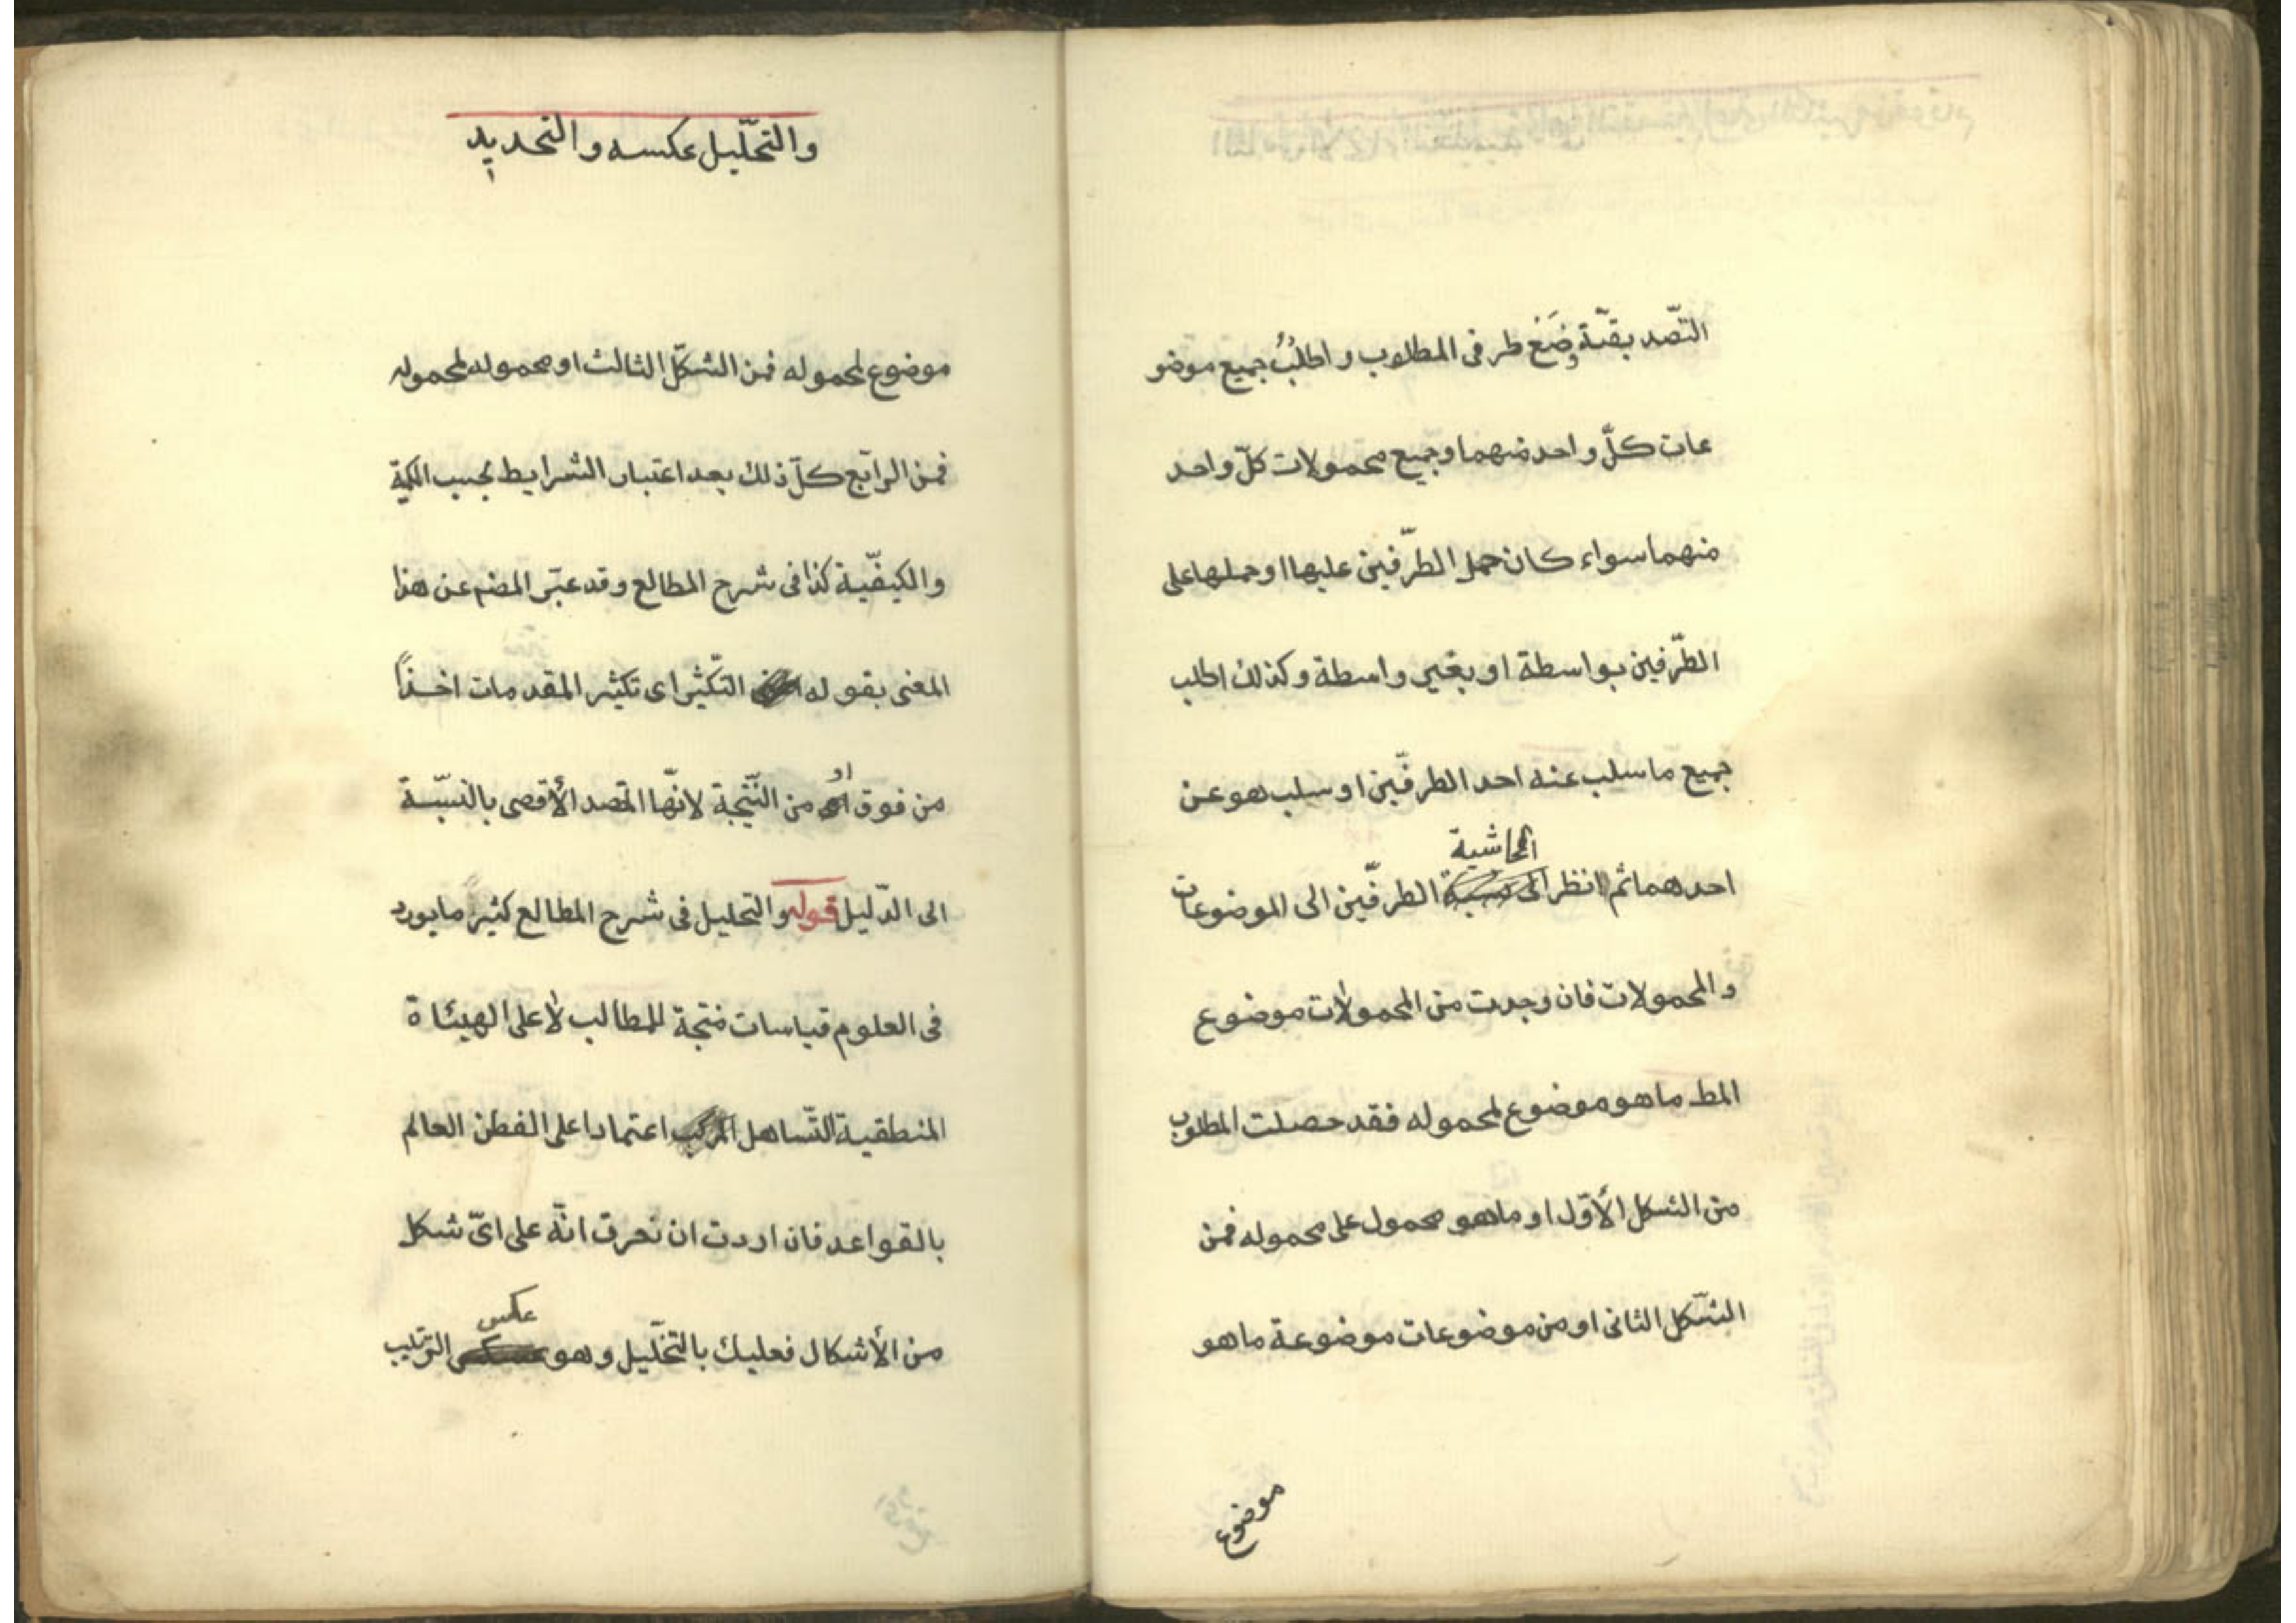 التّصديقيّة وضَعْ طرفى المطلوب واطلبُ جميع موضو
عات كلّ واحد منهما وجميع محمولات كلّ واحد
منهما سواء كان حمل الطّرفين عليها او حملها على
الطّرفين بواسطة او بغير واسطة وكذلك اطلب
جميع ما سلب عنه احد الطرفّين او سلب هو عن
الحاشية
احدهما ثم انظر الى الطرفّين الى الموضوعات
والمحمولات فان وجدت من المحمولات موضوع
المط ما هو موضوع لمحموله فقد حصلت المطلوب
من الشكل الأوّل او ما هو محمول على محموله فمن
الشّكل الثانى او من موضوعات موضوعة ما هو
موضوع
والتحّليل عكسه والتحديد
موضوع لمحموله فمن الشكلّ الثالث او محموله لمحموله
فمن الرابّع كلّ ذلك بعد اعتبار الشرايط بحسب الكميّة
والكيفّية كذا فى شرح المطالع وقد عبّر المضم عن هذا
المغنى بقوله التّكثير اى تكثير المقدمات اخذاً
او
من فوق من النّتيجة لانهّا المقصد الأقصى بالنسبّة
الى الدّليل قوله والتحليل فى شرح المطالع كثيراً ما يورد
فى العلوم قياسات منتجة للمطالب لا على الهيئاة
المنطقية التّساهل المركب اعتمادا على الفطن العالم
بالقواعد فان اردت ان تعرف انّه على اىّ شكل
عكس
من الأشكال فعليك بالتحّليل وهو الترتيب